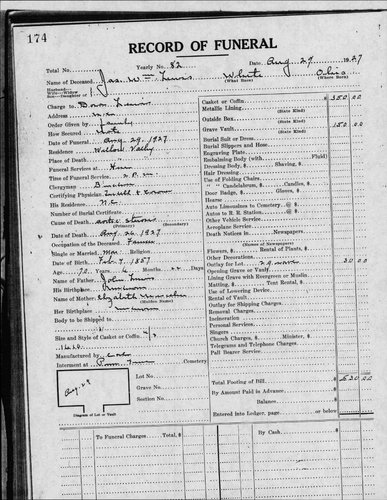 174
RECORD OF FUNERAL
Total No. Yearly No. 82 Date Aug 29 1927
Name of Deceased Jas. W. Lewis White Ohio
(What Race) (Where Born)
Husband—
Wife—Widow
Son—Daughter of
Charge to Lewis
Address
Order Given by family
How Secured Note
Date of Funeral Aug. 29, 1927
Residence Walnut Valley
Place of Death
Funeral Services at
Time of Funeral Service 2 P.M.
Clergyman
Certifying Physician
His Residence N.C.
Number of Burial Certificate
Cause of Death
(Primary) (Secondary)
Date of Death Aug. 26, 1927
Occupation of the Deceased Farmer
Single or Married Mar. Religion
Date of Birth Feb. 4, 1857
Age: 70 Years 6 Months 22 Days
Name of Father John Lewis
His Birthplace Unknown
Name of Mother Elizabeth
Her Birthplace Unknown
Body to be Shipped to
Size and Style of Casket or Coffin
Manufactured by
Interment at Cemetery
Lot No.
Grave No.
Section No.
Aug 29
Diagram of Lot or Vault
Casket or Coffin $ 350 00
Metallic Lining
(State Kind)
Outside Box
(State Kind)
Grave Vault 150 00
(State Kind)
Burial Suit or Dress
Burial Slippers and Hose
Engraving Plate
Embalming Body (with Fluid)
Dressing Body, $ Shaving, $
Hair Dressing
Use of Folding Chairs
" " Candelabrum, $ Candles, $
Door Badge, $ Gloves, $
Hearse
Auto Limousines to Cemetery @ $
Autos to R. R. Station @ $
Other Vehicle Service
Aeroplane Service
Death Notices in Newspapers
(Names of Newspapers)
Flowers, $ Rental of Plants, $
Other Decorations
Outlay for Lot 30 00
Opening Grave or Vault
Lining Grave with Evergreen or Muslin
Matting, $ Tent Rental, $
Use of Lowering Device
Rental of Vault
Outlay for Shipping Charges
Removal Charges
Incineration
Personal Services
Singers
Church Charges, $ Minister, $
Telegrams and Telephone Charges
Pall Bearer Service
Total Footing of Bill $ 530 00
By Amount Paid in Advance
Balance
Entered into Ledger, page or below
To Funeral Charges Total, $ By Cash $